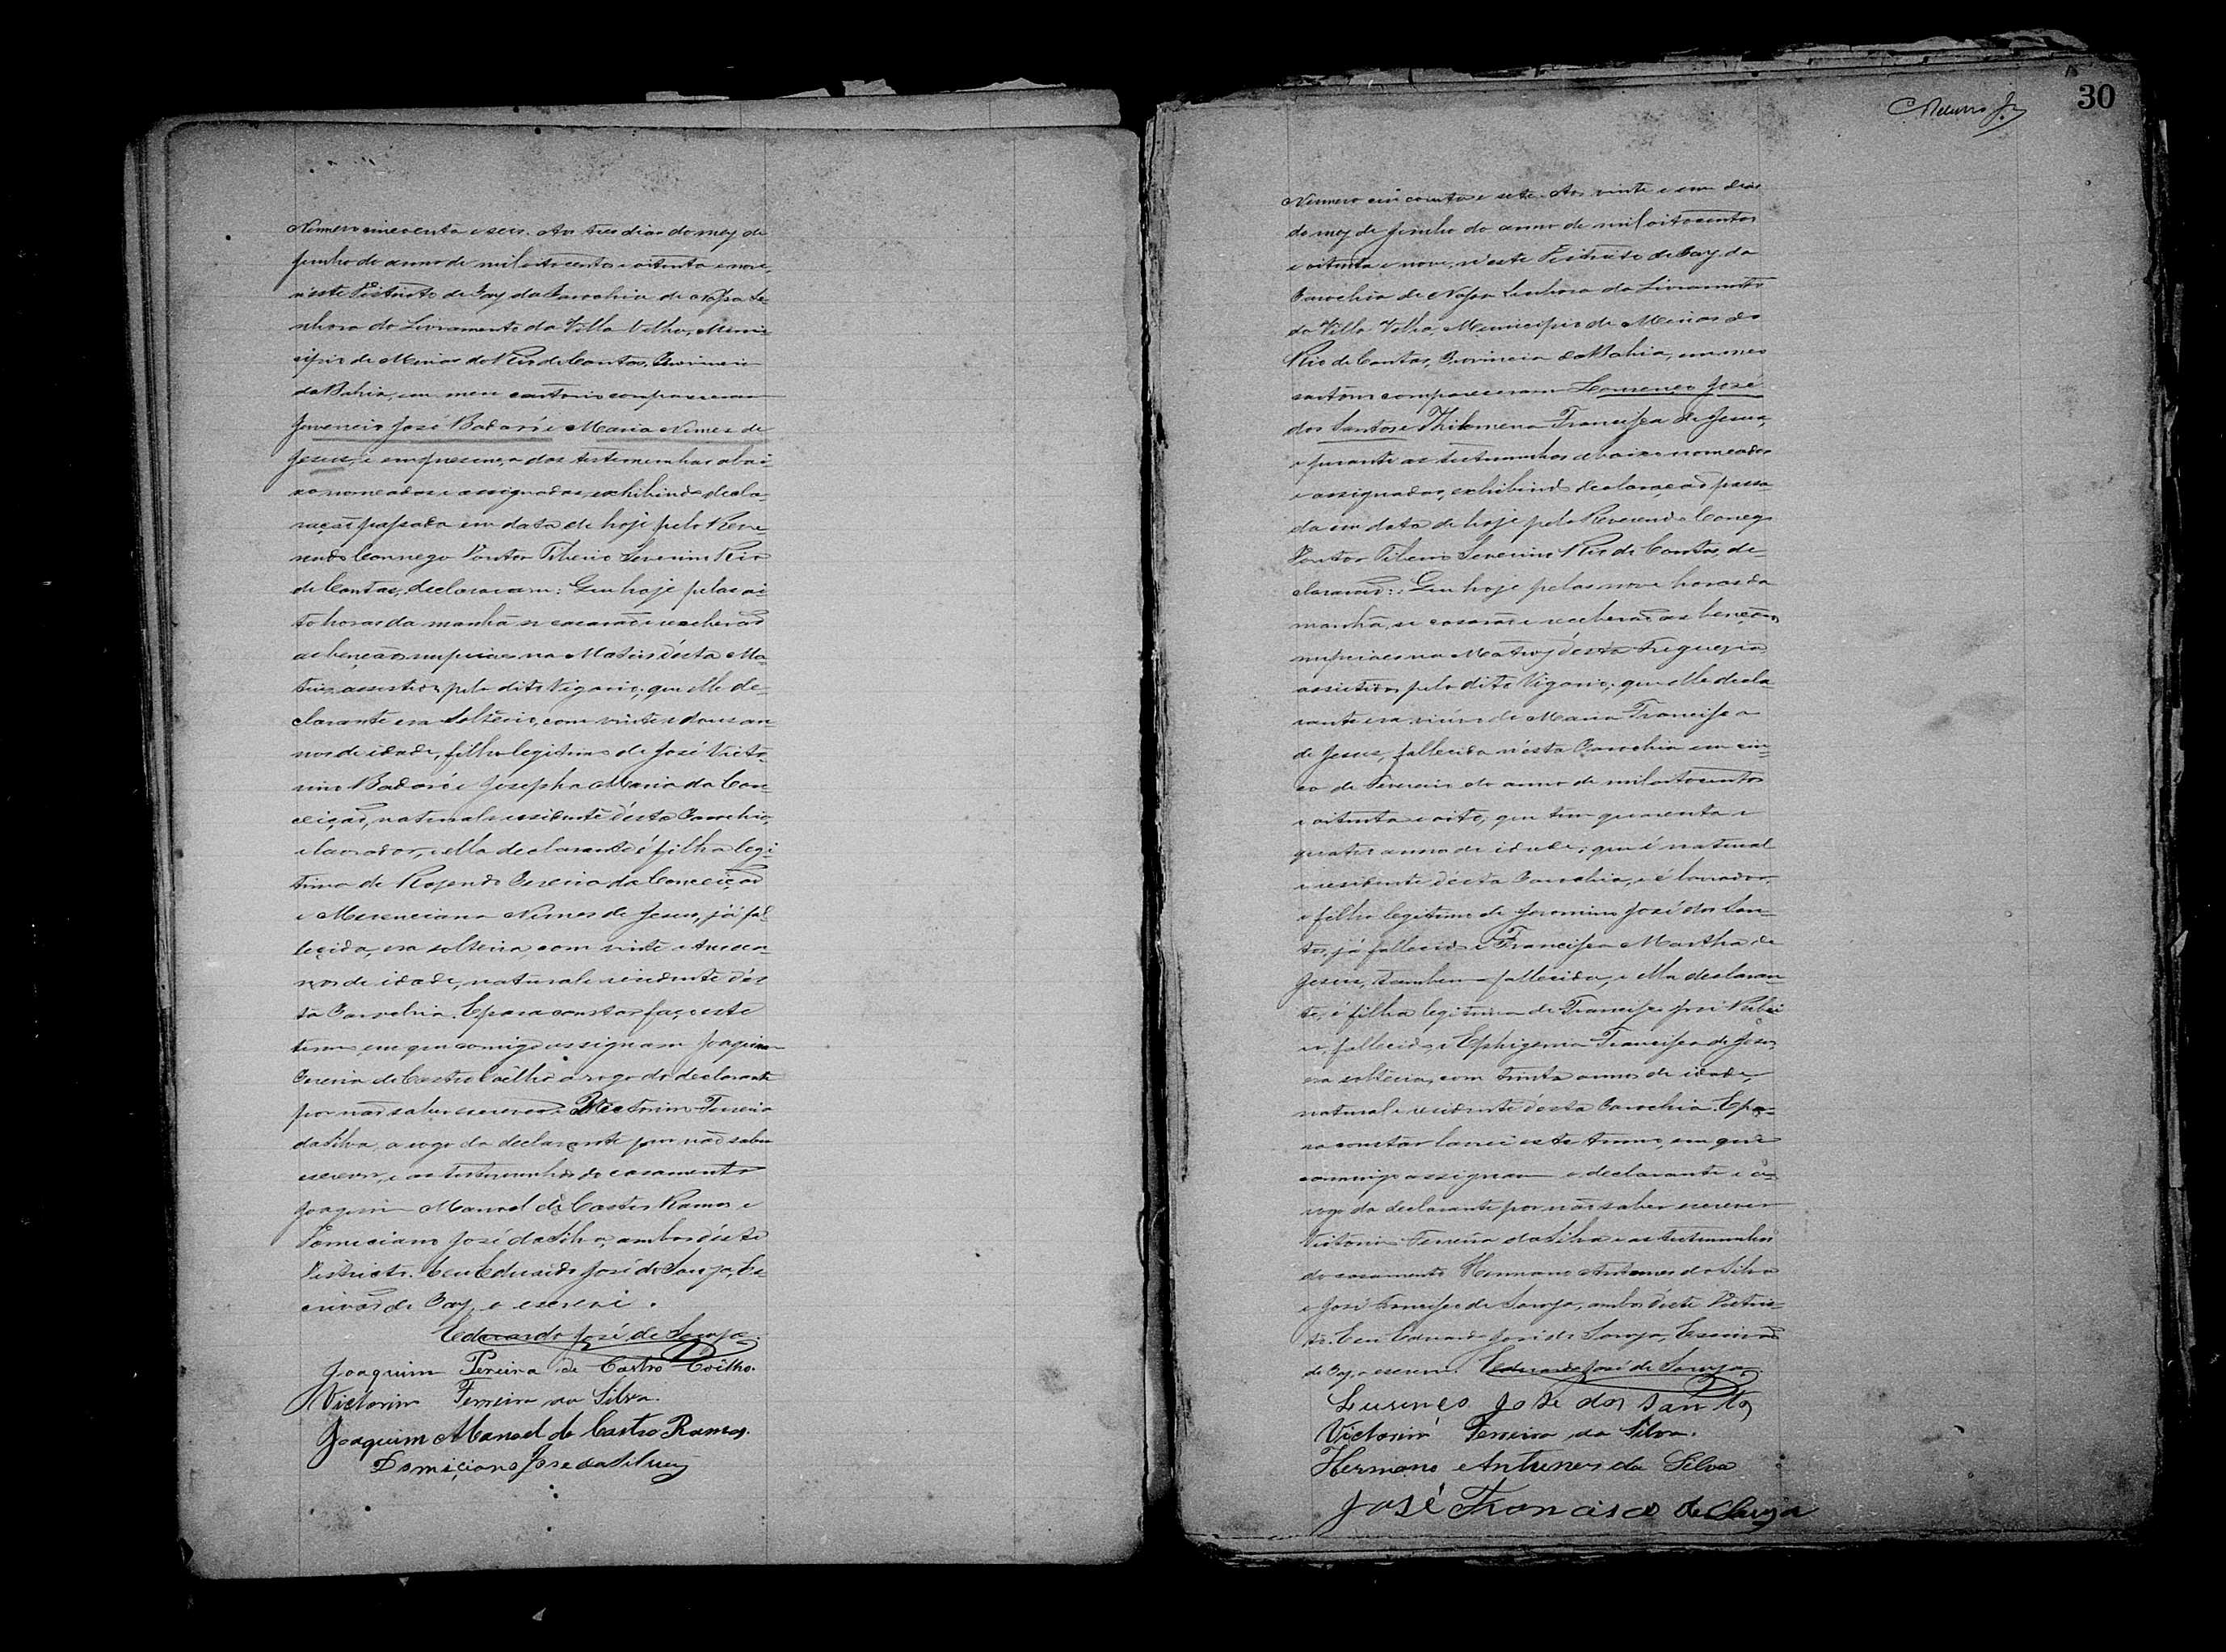 Numero cincoenta e seis. Aos tres dias do mez de
Junho do anno de mil oito centos e oitenta e nove,
n'este Districto de Paz da Parochia de Nossa Se-
nhora do Livramento da Villa Velha, Muni-
cipio de Minas do Rio de Contas, Provincia
da Bahia, em meu cartorio compareceram
Juvencio José Badaró e Maria Nunes de
Jesus, e em presença das testemunhas abai-
xo nomeadas e assignadas, exhibindo decla-
ração passada em data de hoje pelo Reve-
rendo Connego Doutor Tiberio Severino Rio
de Contas, declararam: Que hoje pelas oi-
to horas da manhã se casarão e receberão
as bençãos nupciaes na Matriz désta Ma-
triz, assistidos pelo dito Vigario; que elle de-
clarante era solteiro, com vinte e dous an-
nos de idade, filho legitimo de José Victo-
rino Badaró e Josepha Maria da Con-
ceição, natural e residente désta Parochia,
e lavrador, e ella declarante é filha legi-
tima de Rozendo Pereira da Conceição
e Merenciana Nunes de Jesus, já fal-
lecida, era solteira, com vinte e tres an-
nos de idade, natural e residente dés-
ta Parochia. E para constar faço este
termo em que comigo assignam Joaquim
Pereira de Castro Coêlho a rogo do declarante
por não saber escrever, Victorino Ferreira
da Silva, a rogo da declarante por não saber
escrever, e as testemunhas do casamento
Joaquim Manoel de Castro Ramos e
Domiciano José da Silva, ambos déste
Districto. Eu Eduardo José de Souza, Es-
crivão de Paz, o escrevi.
Eduardo José de Souza
Joaquim Pereira de Castro Coêlho.
Victorino Ferreira da Silva.
Joaquim Manoel de Castro Ramos.
Domiciano Jose da Silva
30
Numero cincoenta e sete. Aos vinte e um dias
do mez de Junho do anno de mil oitocentos
e oitenta e nove, n'este Districto de Paz da
Parochia de Nossa Senhora do Livramento
da Villa Velha, Municipio de Minas do
Rio de Contas, Provincia da Bahia, em meu
cartorio compareceram Lourenço José
dos Santos e Philomena Francisca de Jesus,
e perante as testemunhas abaixo nomeadas
e assignadas, exhibindo declaração passa-
da em data de hoje pelo Reverendo Conego
Doutor Tiberio Severino Rio de Contas, de-
clararão: Que hoje pelas nove horas da
manhã, se casarão e receberão as bençãos
nupciaes na Matriz désta Freguezia
assistidos pelo dito Vigario; que elle decla-
rante era viúvo de Maria Francisca
de Jesus, fallecida n'ésta Parochia em cin-
co de Fevereiro do anno de mil oitocentos
e oitenta e oito, que tem quarenta e
quatro annos de idade; que é natural
e residente désta Parochia, e é lavrador,
e filho legitimo de Jeronimo José dos San-
tos, já fallecido e Francisca Martha de
Jesus, tambem fallecida, e ella declaran-
te, é filha legitima de Francisco José
fallecido, e Ephigenia Francisca de Jesus,
era solteira, com trinta annos de idade,
natural e residente désta Parochia. E pa-
ra constar lavrei este termo, em que
commigo assignam o declarante e a-
rogo da declarante por não saber escrever
Victorino Ferreira da Silva e as testemunhas
do casamento Hermano Antunes da Silva
e José Francisco de Souza, ambos déste Distric-
to. Eu Eduardo José de Souza, Escrivão
de Paz, o escrevi. Eduardo José de Souza
Lurenço Jose dos Santos
Victorino Ferreira da Silva.
Hermano Antunes da Silva
José Francisco de Souza